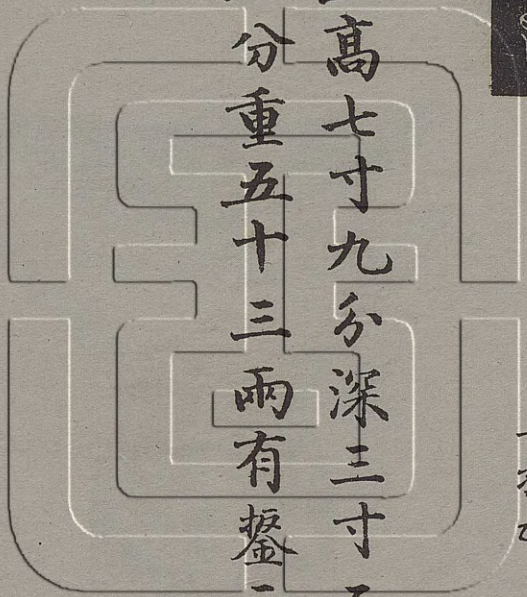 高七寸九分深三寸
分重五十三兩有鋬